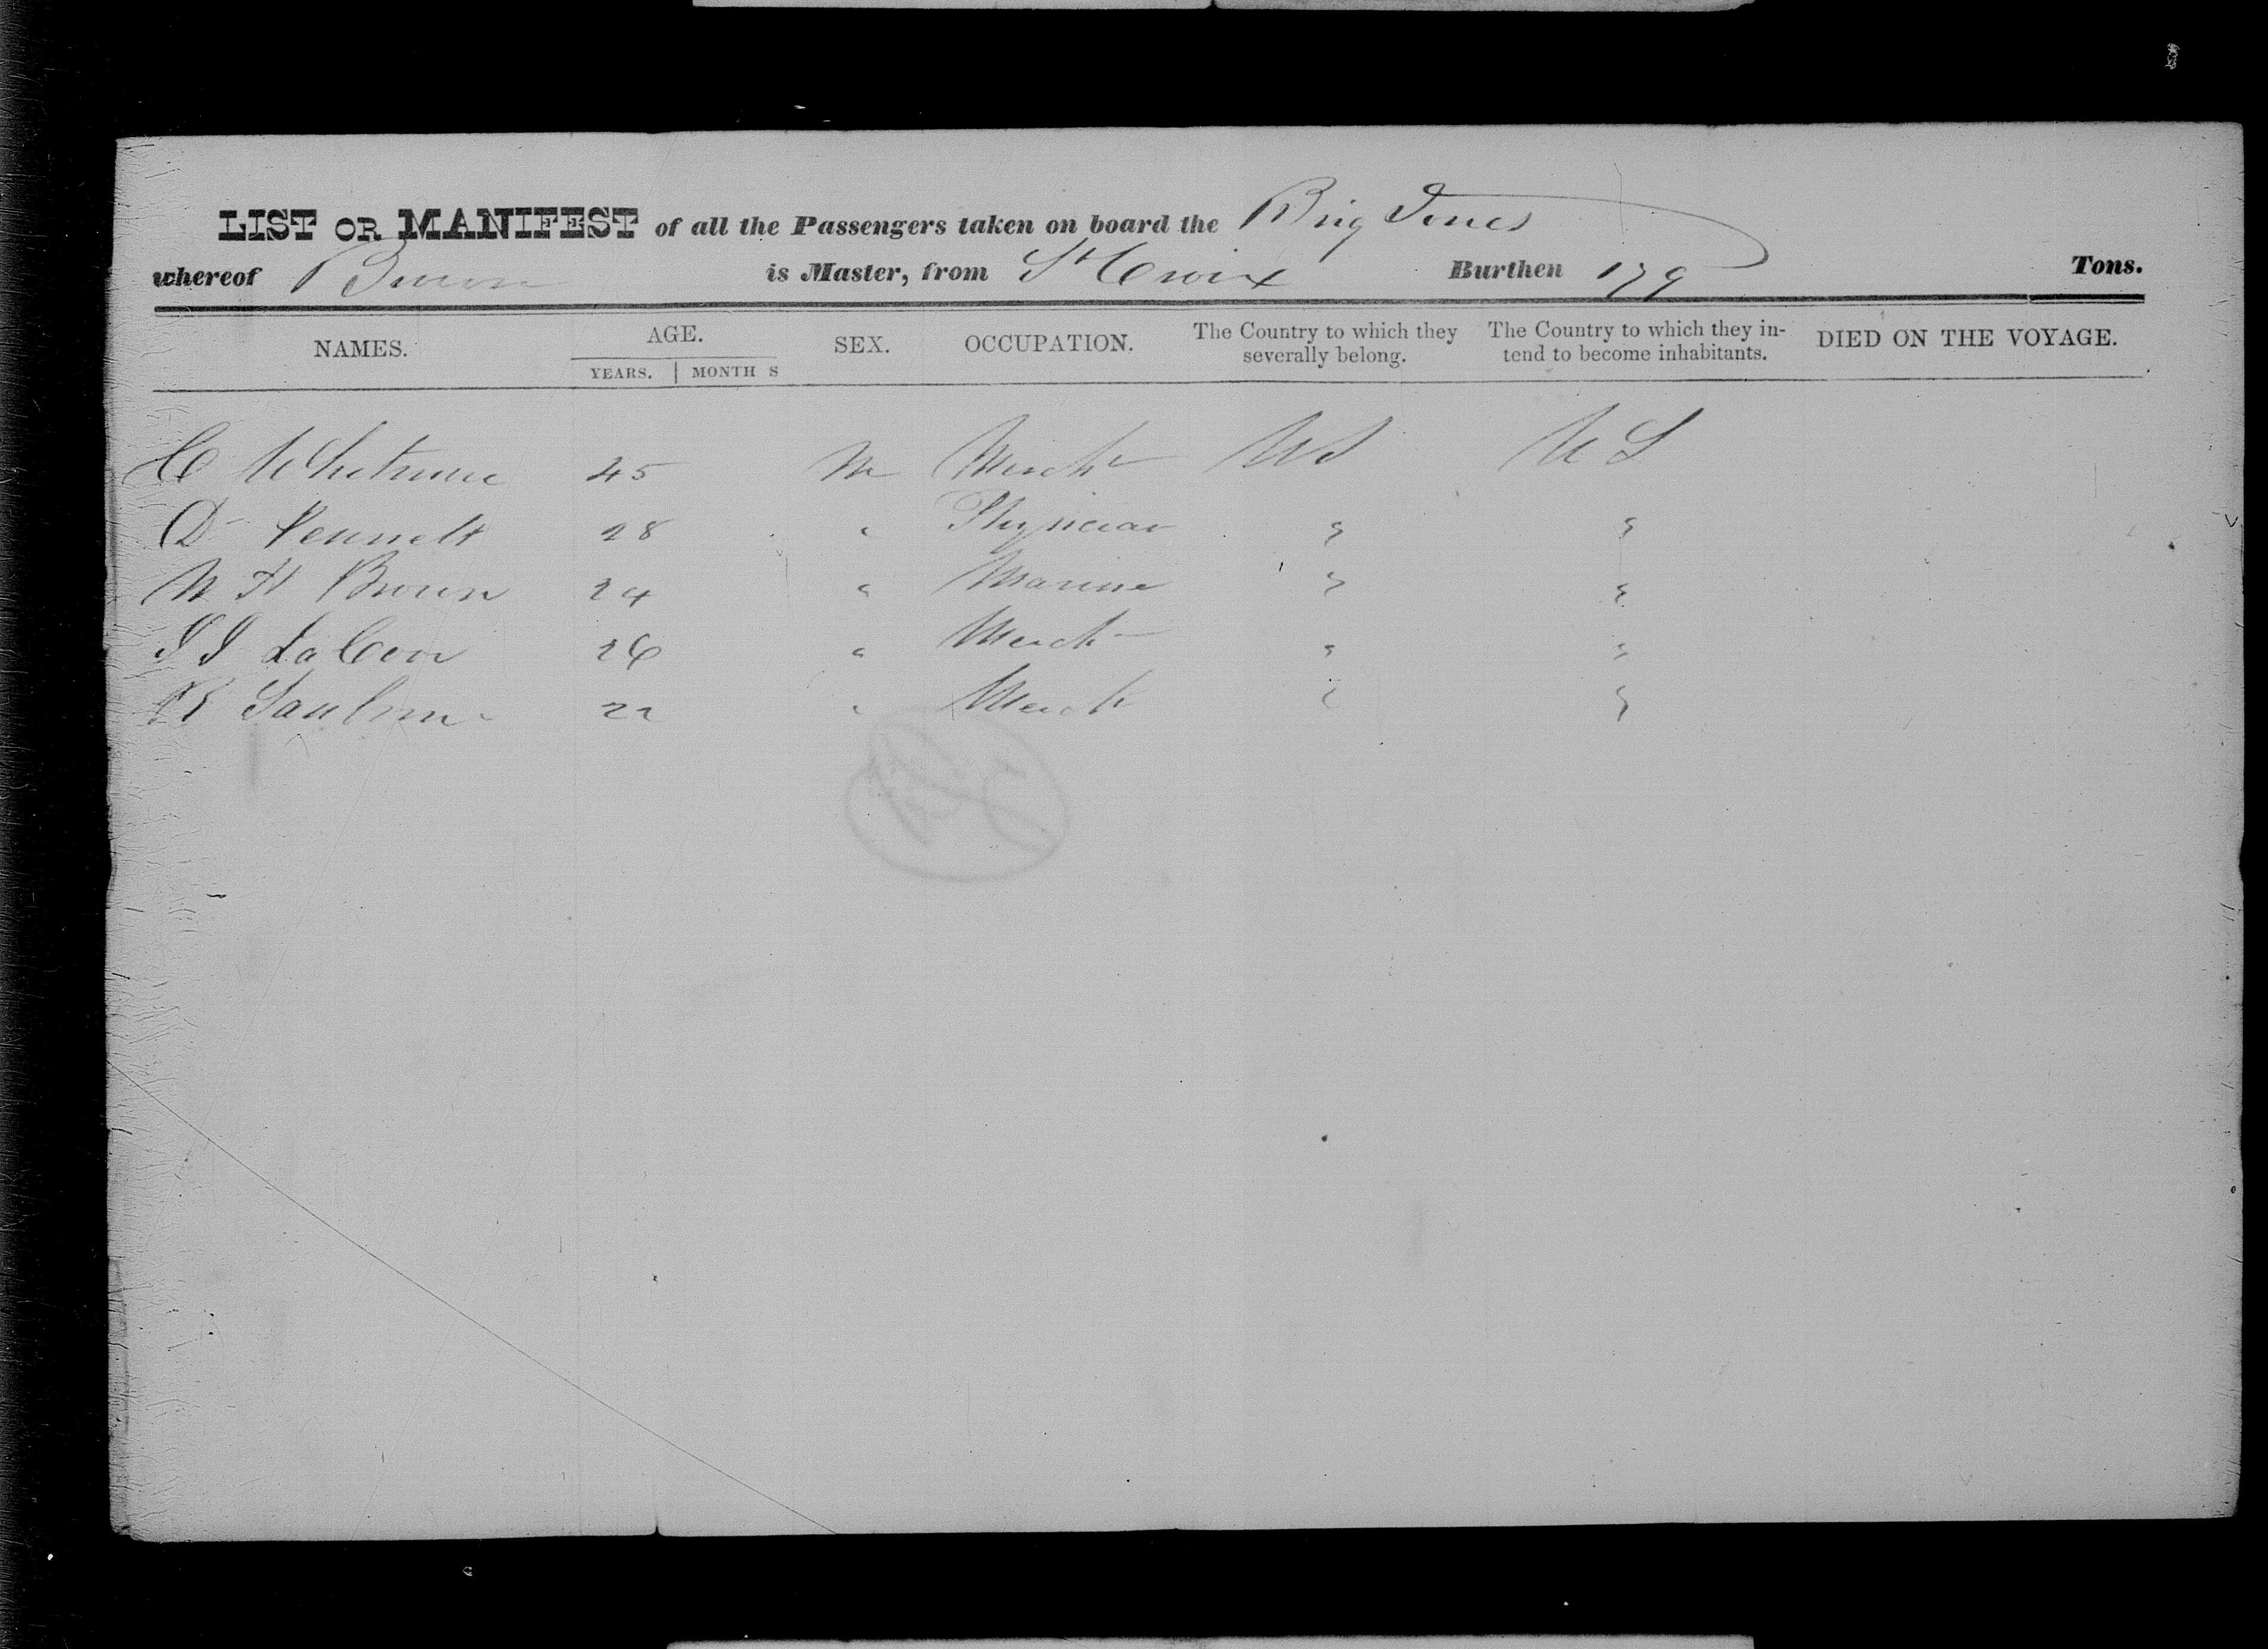 LIST OR MANIFEST of all the Passengers taken on board the Brig
whereof is Master, from St Croix Burthen 179 Tons.
NAMES. AGE. SEX. OCCUPATION. The Country to which they severally belong. The Country to which they intend to become inhabitants. DIED ON THE VOYAGE.
YEARS. MONTHS
C 45 M Mercht US US
D 28 " Physician " "
W H Brown 24 " Marine " "
26 " Mercht " "
22 " Mercht " "